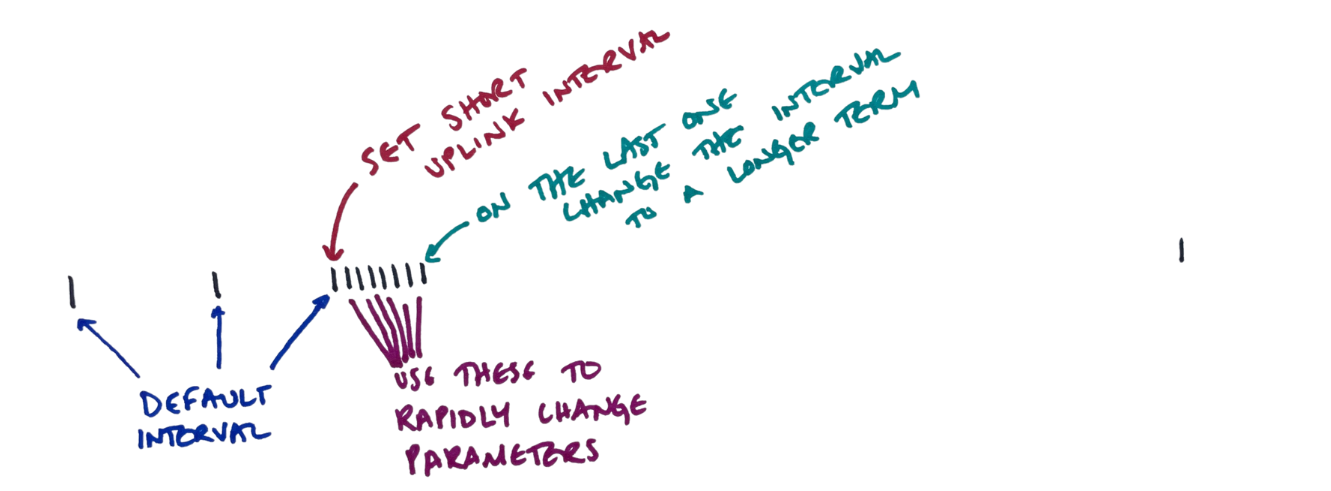 SET SHORT
UPLINK INTERVAL
ON THE LAST ONE
CHANGE THE INTERVAL
TO A LONGER TERM
DEFAULT
INTERVAL
USE THESE TO
RAPIDLY CHANGE
PARAMETERS